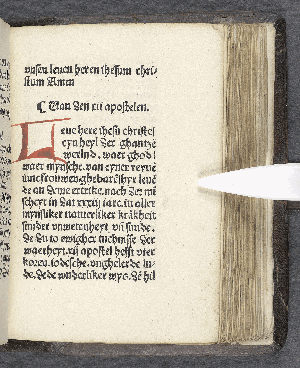 vnsen leuen heren ihesum chri-
stum Amen
¶ Van den xii apostelen.
Leue here ihesu christe
eyn heyl der ghantze
werlnd. waer ghod
waer mynsche. van eyner reyne
iuncfrouwen ghebaren hyr leue
de an deme ertrike. nach der mi
scheyt in dat xxxiij iare. in aller
mynsliker naturliker krãkheit
sunder vnwetenheyt vñ sunde.
de du to ewigher tuchnisse der
waerheyt. xij apostel hefft vter
koren. iodesche. vngheleerde lu-
de. de de wnderliker wys. de hil